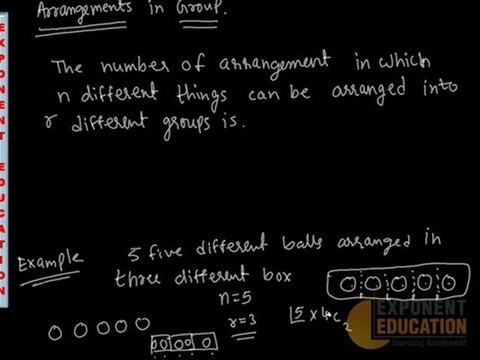 Arrangements in Group.
The number of arrangement in which
n different things can be arranged into
r different groups is.
Example 5 five different balls arranged in
three different box
n=5
r=3
5 × 4C2
EXPONENT EDUCATION
EXPONENT
EDUCATION
Learning Accelerated